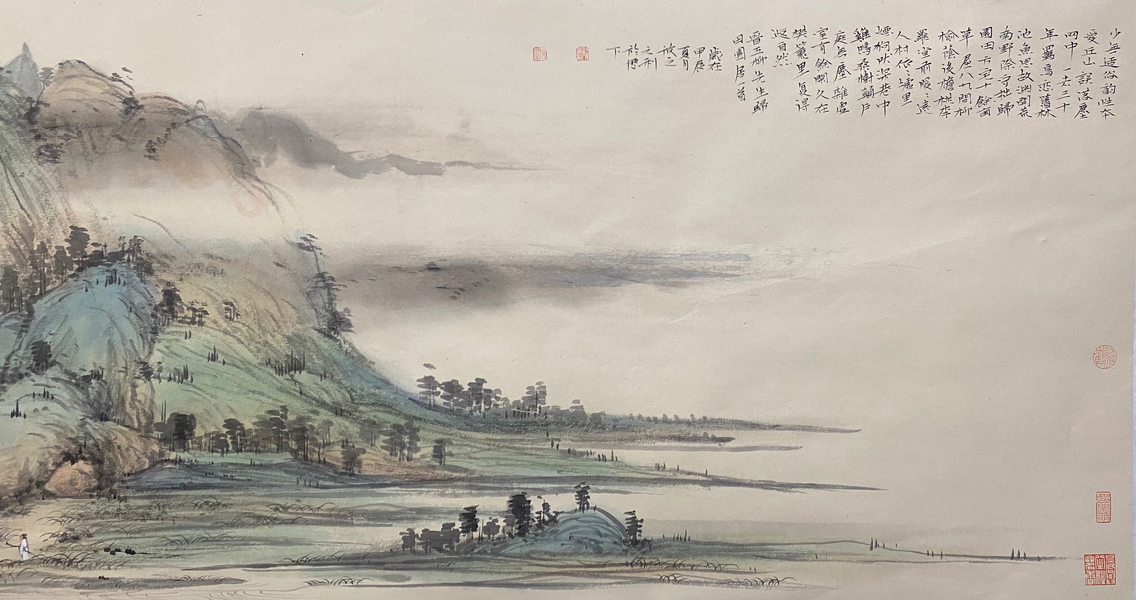 少无适俗韵性本
愛丘山誤落塵
网中一去三十
年羈鳥恋舊林
池魚思故淵開荒
南野際守拙歸
園田方宅十餘畝
草屋八九間柳
榆蔭後檐桃李
羅堂前暧〻遠
人村依〻墟里
煙狗吠深巷中
雞鳴桑樹顛户
庭無塵雜虛
室有餘閒久在
樊籠里复得
返自然
晉五柳先生歸
田園居首
歲在
甲辰
夏月
之利
於
下